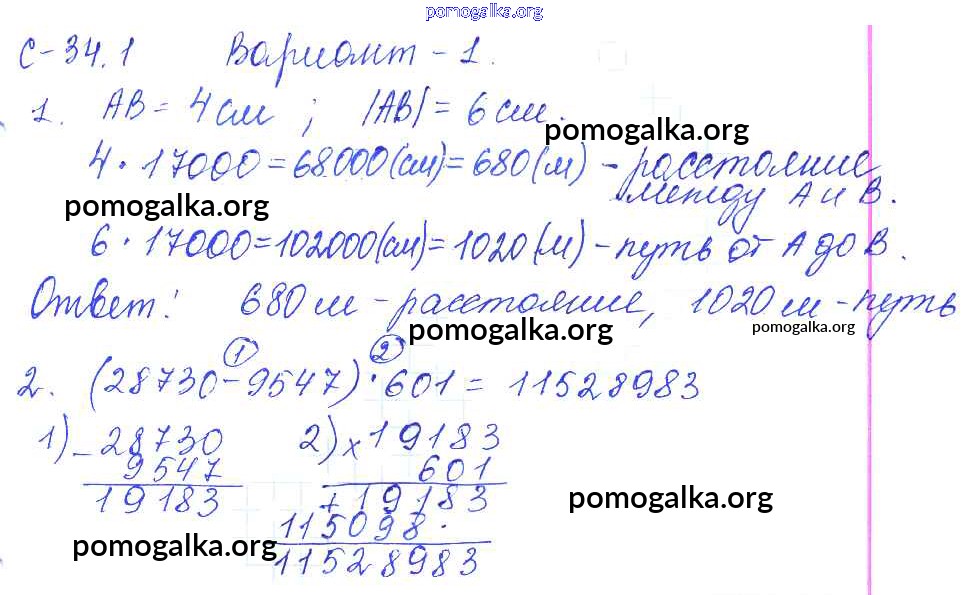 pomogalka.org
С-34.1 Вариант - 1.
1. АВ = 4 см ; |АВ| = 6 см.
pomogalka.org
4 · 17000 = 68000 (см) = 680 (м) - расстояние
между А и В.
pomogalka.org
6 · 17000 = 102000 (см) = 1020 (м) - путь от А до В.
Ответ: 680 м - расстояние, 1020 м - путь
pomogalka.org
pomogalka.org
1 2
2. (28730 - 9547) · 601 = 11528983
1) - 28730 2) × 19183
9547 601
19183 + 19183
pomogalka.org
115098 ·
pomogalka.org
11528983